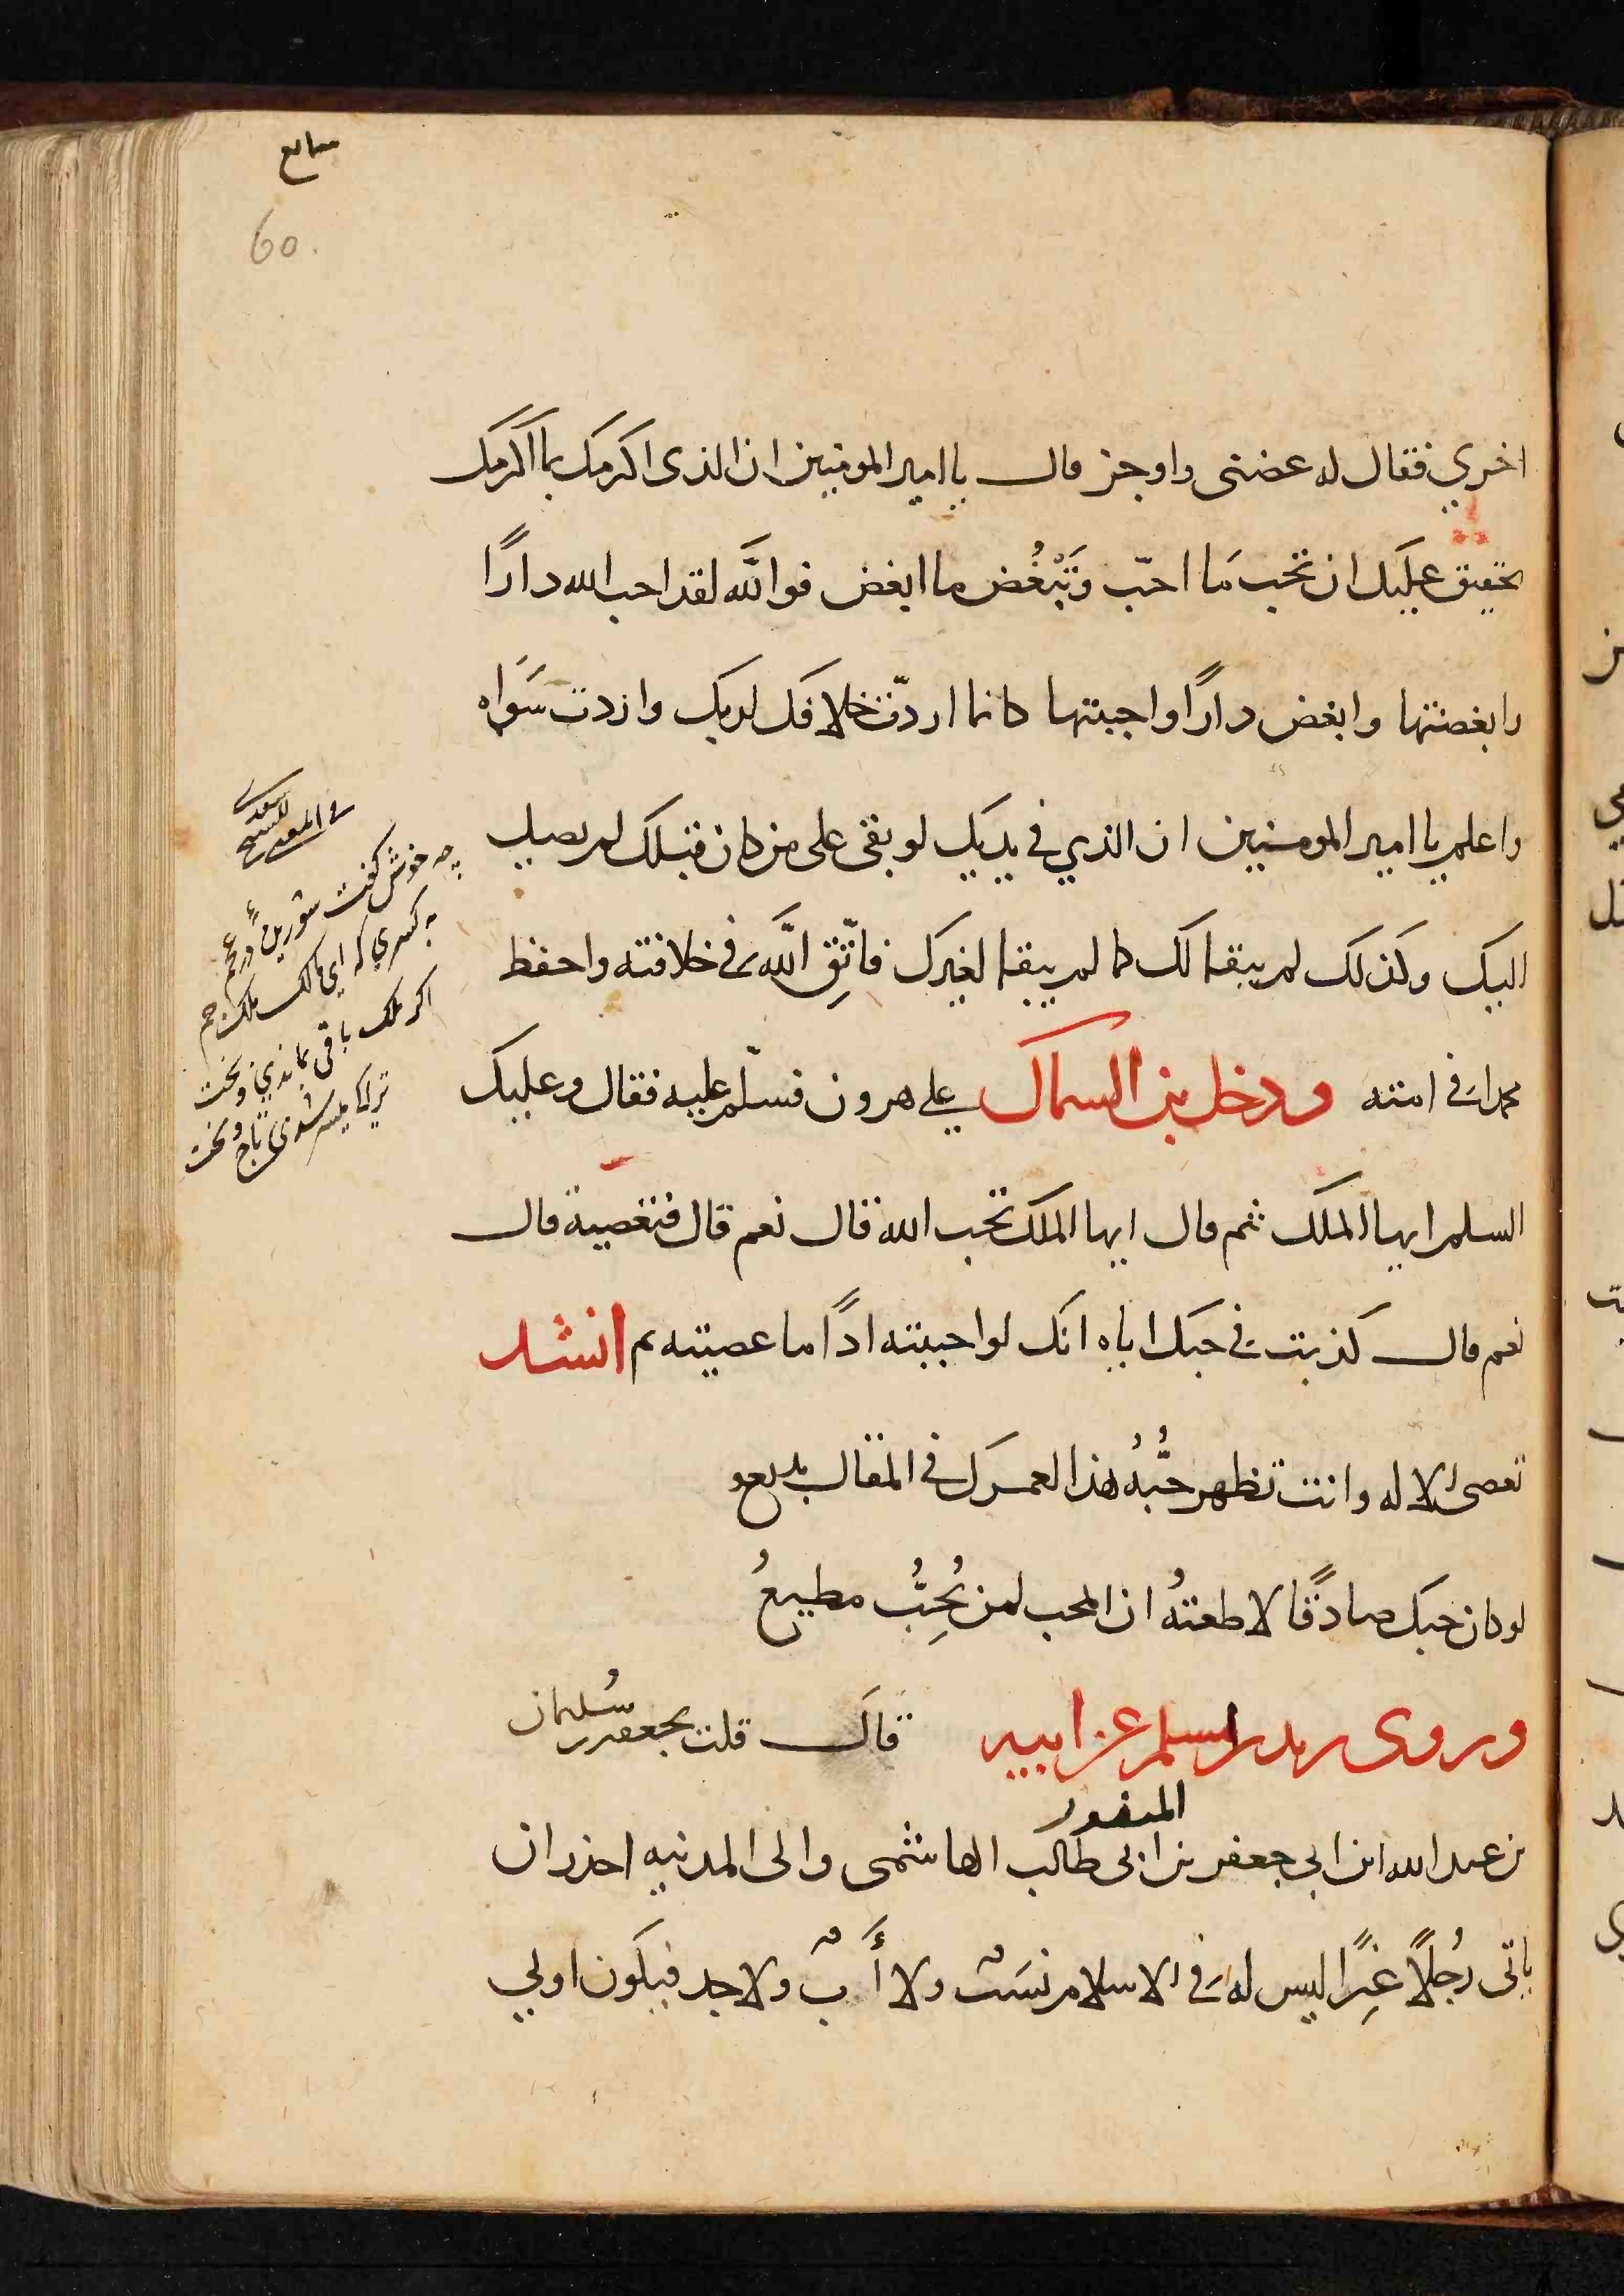 سابع
60.
اخري فقال له عضنى واوجز قال يا امير المومنين ان الذى اكرمك بما اكرمك
تحقيق عليك ان تحب مَا احبّ وَتَبْغُض ما ابغض فو اللَّه لقد احب الله دارًا
وابغضتها وابغض دارًا واحببتها كانما اردّت خلافك لربك وازدت سَوَاه
واعلم يا امير المومنين ان الذي في يديك لو بقى على من كان قبلك لم يصل
اليك وكذلك لم يبقا لك كما لم يبقا لغيرك فاتّقِ اللَّه في خلافته واحفظ
محمدا في امته ودخل بن السماك على هرون فسلّم عليه فقال وعليك
السلم ايها الملك ثم قال ايها الملك تحب الله قال نعم قال فتعصيه قال
نعم قال كذبت في حبك اياه انك لو احببته اذًا ما عصيته ثم انشد
تعصى الاله وانت تظهر حُبَّهُ هذا لعمرك في المقال بديع
لو كان حبك صادقًا لاطعتهُ ان المحب لمن يُحِبُّ مطيعُ
وروى زيد بن اسلم عن ابيه قال قلت لجعفر بن سُليمان
المنصور
بن عبد الله ابن ابي جعفر بن ابى طالب الهاشمى والى المدنيه احذر ان
ياتى رُجلًا غدًا ليس له في الاسلام نسَب ولا أَب ولا جد فيكون اولي
للسعدي
في المعنى
چه خوش گفت شوريده در عجم
به كسري كه اي مالك ملك جم
اكر ملك باقى بماندي وبخت
ترا كا ميسر شدي تاج وتخت